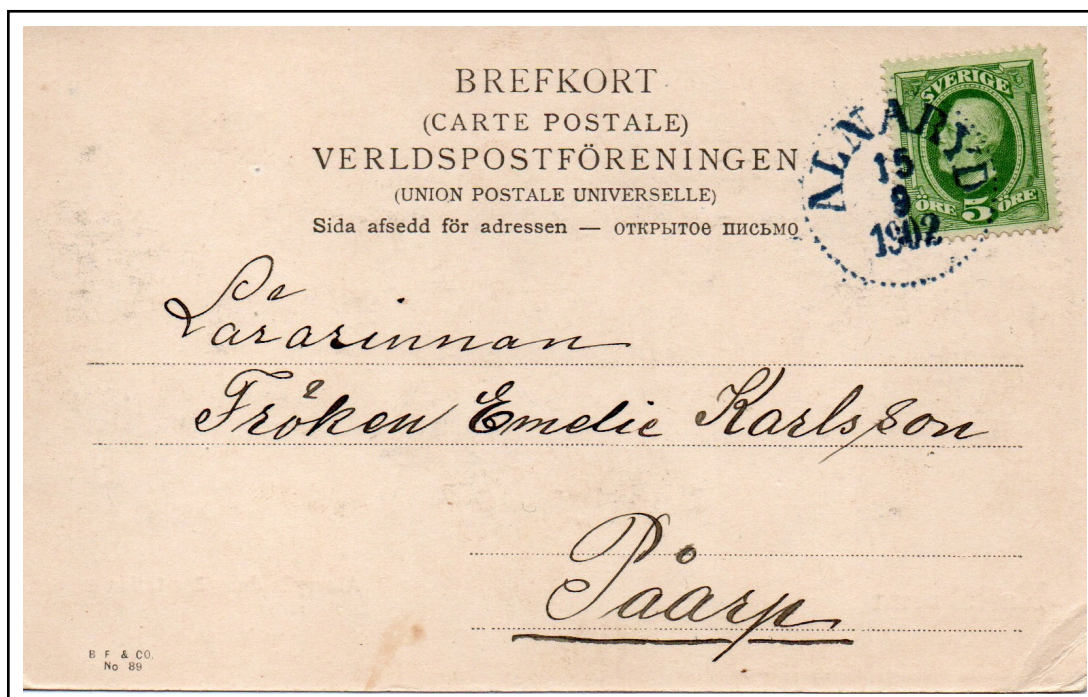 BREFKORT
(CARTE POSTALE)
VERLDSPOSTFÖRENINGEN
(UNION POSTALE UNIVERSELLE)
Sida afsedd för adressen — открытое письмо
SVERIGE
5 ÖRE ÖRE
ALNARYD
15
9
1902
Lärarinnan
Fröken Emelie Karlsson
Påarp
B F & CO.
No 89